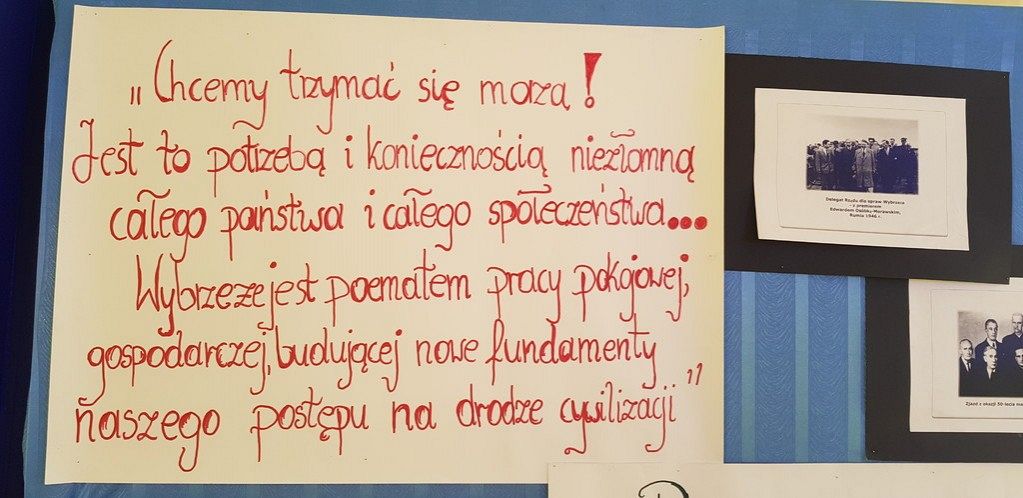 „Chcemy trzymać się morza!
Jest to potrzebą i koniecznością niezłomną
całego państwa i całego społeczeństwa...
Wybrzeże jest poematem pracy pokojowej,
gospodarczej, budującej nowe fundamenty
naszego postępu na drodze cywilizacji"
Delegat Rządu dla spraw Wybrzeża
- z premierem
Edwardem Osóbką-Morawskim,
Rumia 1946 r.
Zjazd z okazji 50-lecia ma